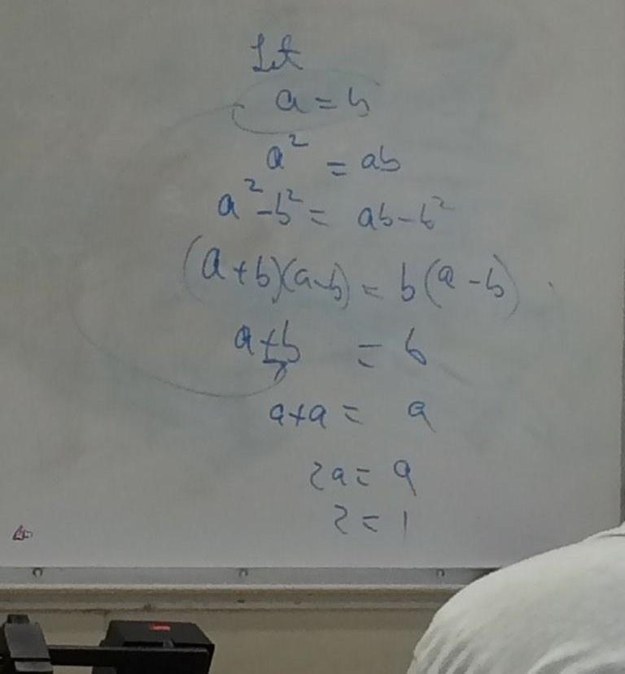 Let
a = b
a² = ab
a² - b² = ab - b²
(a+b)(a-b) = b(a-b)
a+b = b
a+a = a
2a = a
2 = 1